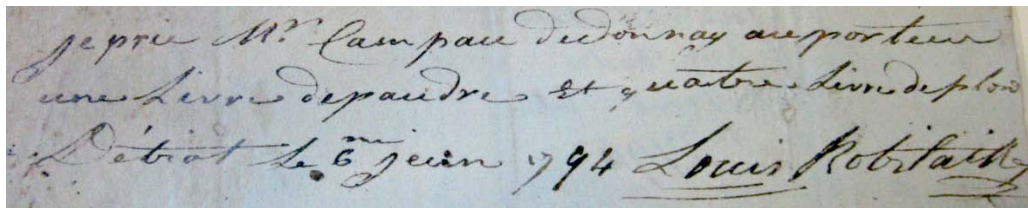 je prie Mr. Campau dedonnay au porteur
une Livre depaudre Et quatre Livre deplon
Détroat Le 6me jeuin 1794 Louis Robitaille